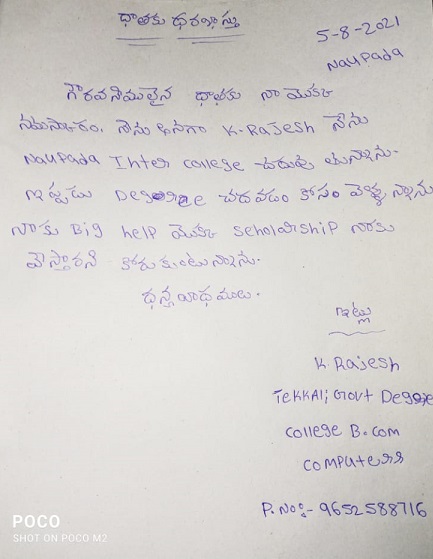 దాతకు దరఖాస్తు
5-8-2021
Naupada
గౌరవనీయులైన దాతకు నా యొక్క
నమస్కారం, నేను అనగా K-Rajesh నేను
Naupada Inter college చదువు తున్నాను.
ఇప్పుడు Degree చదవడం కోసం వెళ్తున్నాను
నాకు Big help యొక్క scholarship నాకు
వేస్తారని కోరుకుంటున్నాను.
ధన్యవాధములు.
ఇట్లు
K. Rajesh
TeKKAli, Govt Degree
college B.com
computers
P. No:- 9652588716
POCO
SHOT ON POCO M2